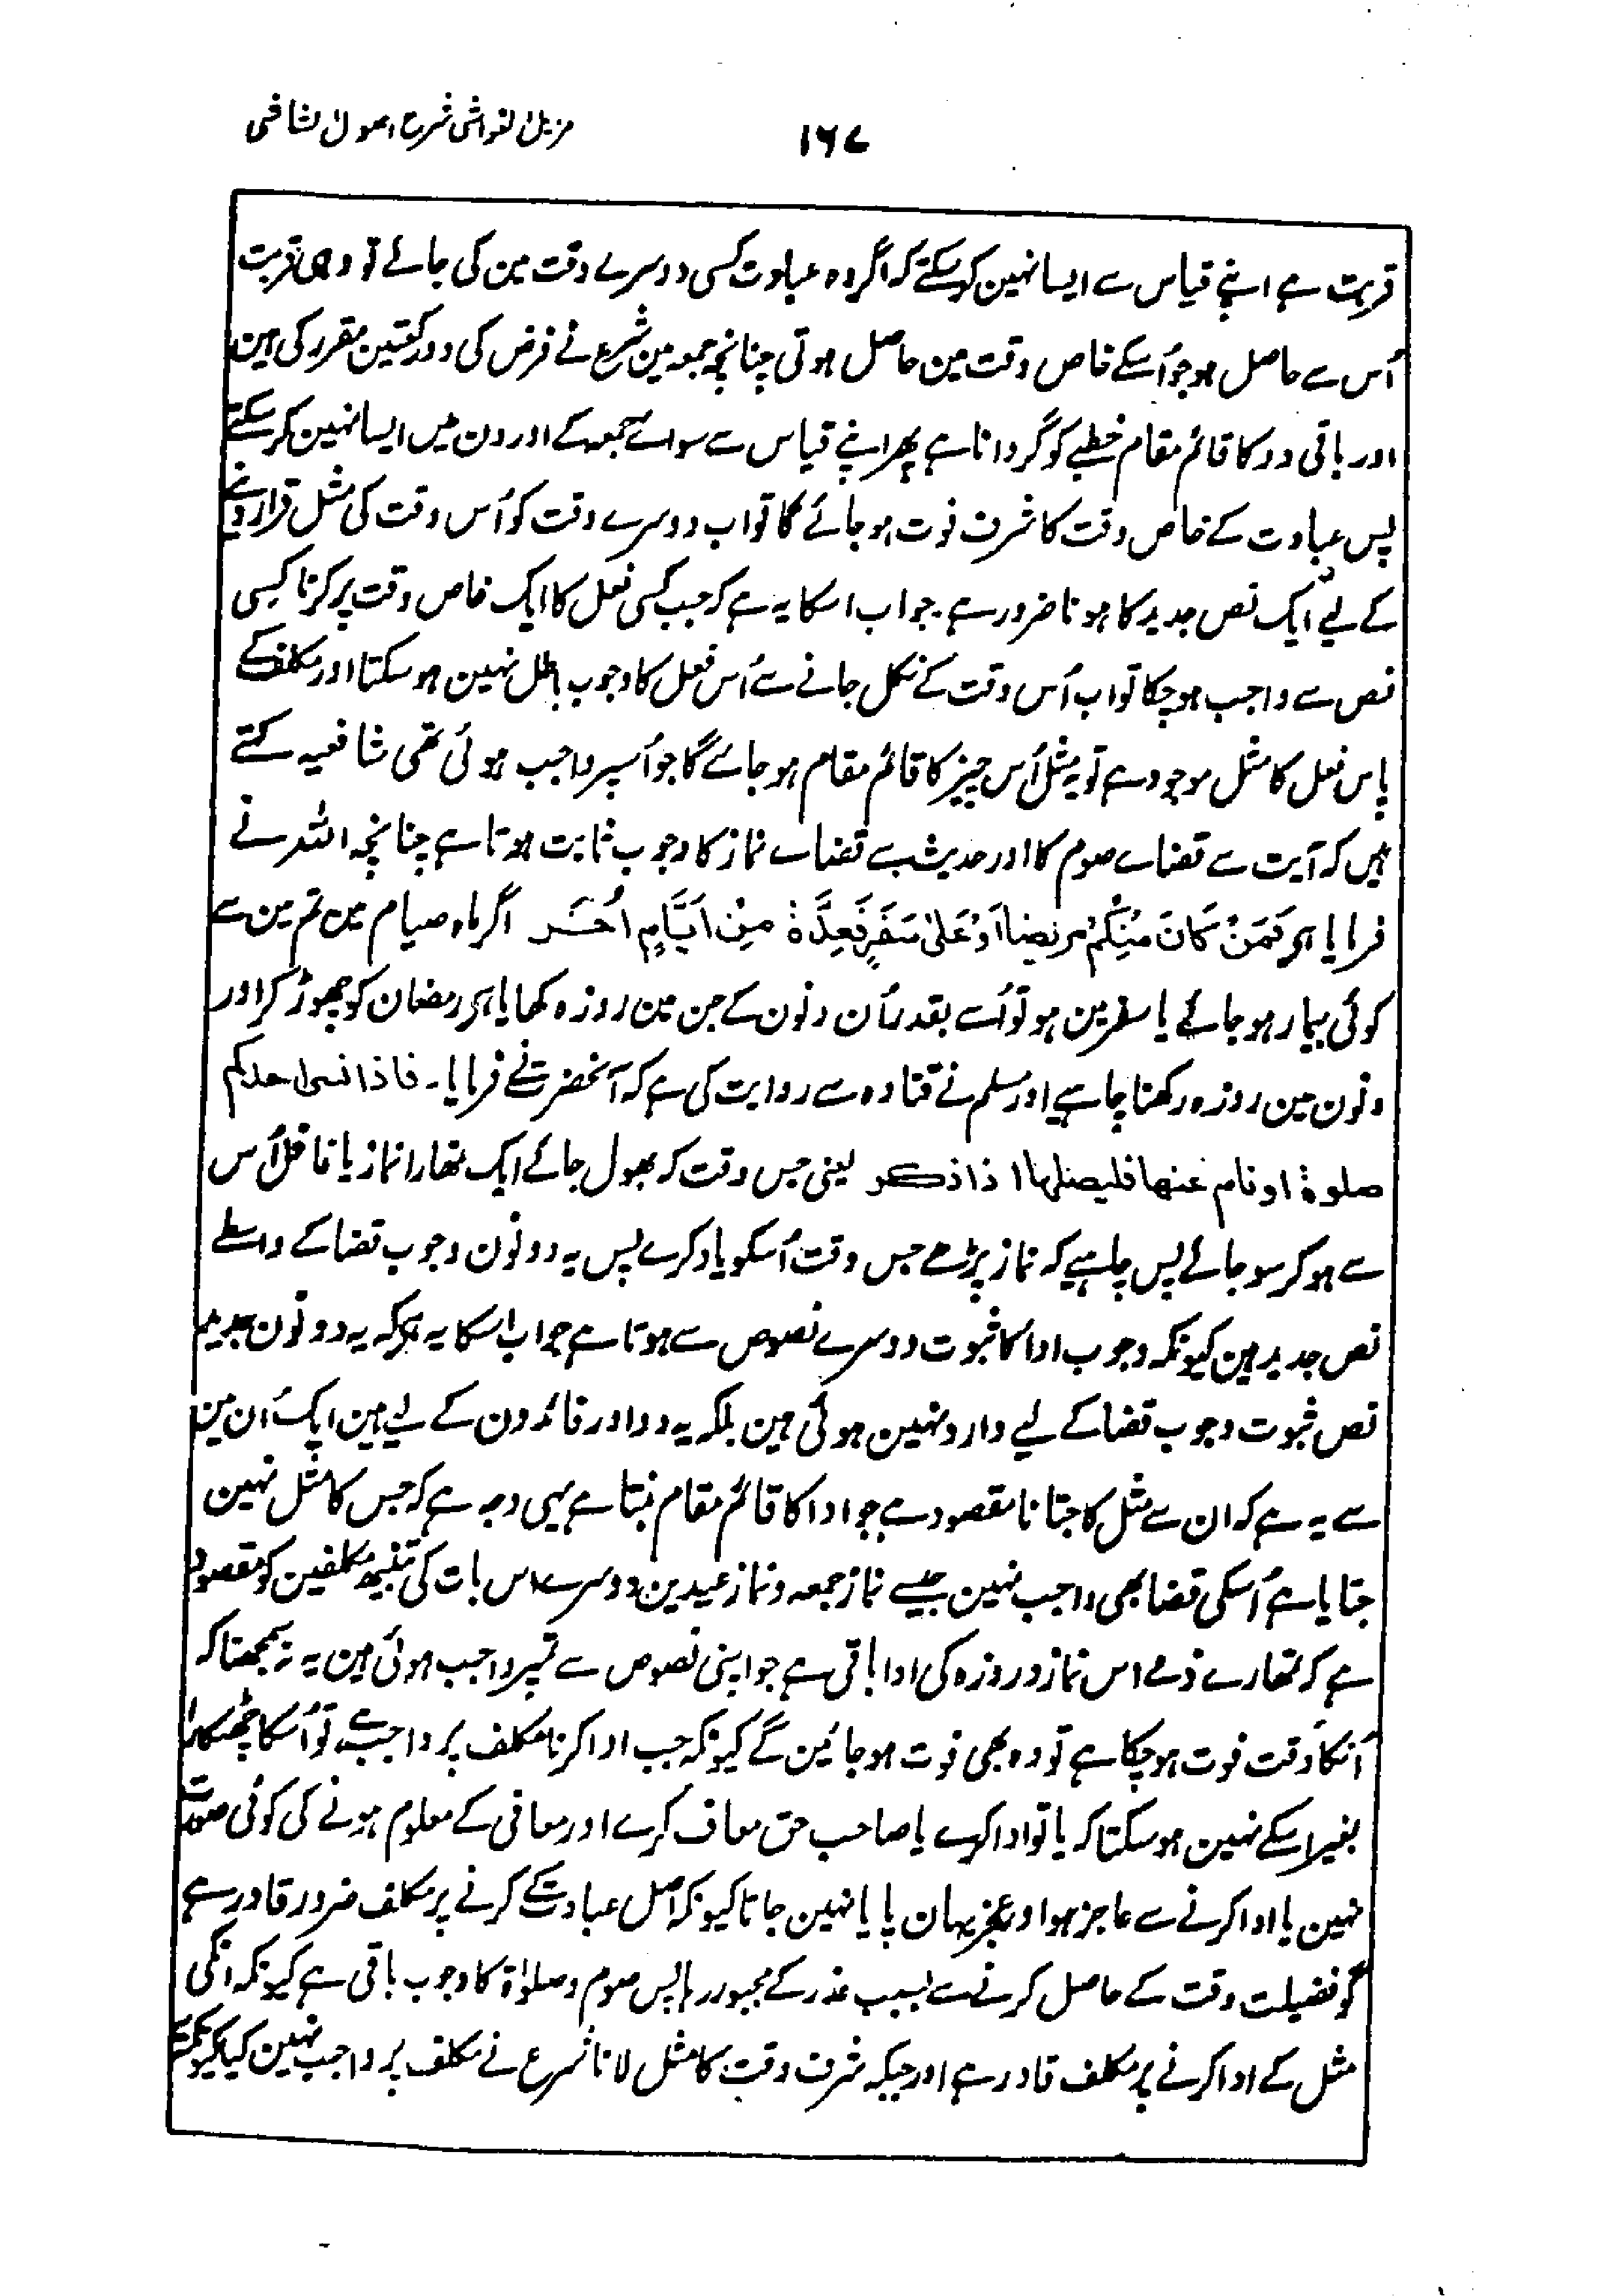 ۱۶۷
مزیل الغواشی شرح اصول الشاشی
قربت ہے اپنے قیاس سے ایسا نہین کہہ سکتے کہ اگر وہ عبادت کسی دوسرے وقت مین کی جائے تو وہی قربت
اُس سے حاصل ہو جو اُسکے خاص وقت مین حاصل ہوتی چنانچہ جمعہ مین شرع نے فرض کی دو رکعتین مقرر کی ہین
اور باقی دو کا قائم مقام خطبے کو گردانا ہے پھر اپنے قیاس سے سوائے جمعہ کے اور دن میں ایسا نہین کر سکتے
پس عبادت کے خاص وقت کا شرف فوت ہو جائے گا تو اب دوسرے وقت کو اُس وقت کی مثل قرار دینے
کے لیے ایک نص جدید کا ہونا ضرور ہے۔ جواب اسکا یہ ہے کہ جب کسی فعل کا ایک خاص وقت پر کرنا کسی
نص سے واجب ہو چکا تو اب اُس وقت کے نکل جانے سے اُس فعل کا وجوب باطل نہین ہو سکتا اور مکلف کے
پاس فعل کا مثل موجود ہے تو یہ مثل اُس چیز کا قائم مقام ہو جائے گا جو اُسپر واجب ہوئی تھی شافعیہ کہتے
ہیں کہ آیت سے قضاے صوم کا اور حدیث سے قضاے نماز کا وجوب ثابت ہوتا ہے چنانچہ اللہ نے
فرمایا ہی فَمَنْ كَانَ مِنْكُمْ مَرِيضًا اَوْ عَلیٰ سَفَرٍ فَعِدَّةٌ مِنْ اَيَّامٍ اُخَرَ اگر ماہ صیام مین تم مین سے
کوئی بیمار ہو جائے یا سفر مین ہو تو اُسے بقدر اُن دنون کے جن مین روزہ کھایا ہی رمضان کو چھوڑ کر اور
دنون مین روزہ رکھنا چاہیے اور مسلم نے قتادہ سے روایت کی ہے کہ آنحضرت نے فرمایا۔ فاذا نسی احدکم
صلوة او نام عنها فلیصلها اذا ذکر یعنی جس وقت کہ بھول جائے ایک تمھارا نماز یا غافل اُس
سے ہو کر سو جائے پس چاہیے کہ نماز پڑھے جس وقت اُسکو یاد کرے پس یہ دونون وجوب قضا کے واسطے
نص جدید ہین کیونکہ وجوب ادا کا ثبوت دوسرے نصوص سے ہوتا ہے جواب اسکا یہ ہی کہ یہ دونون جدید
نص ثبوت وجوب قضا کے لیے وارد نہین ہوئی ہین بلکہ یہ دو اور فائدون کے لیے ہین ایک اُن مین
سے یہ ہے کہ ان سے مثل کا جتانا مقصود ہے جو ادا کا قائم مقام بنتا ہے یہی وجہ ہے کہ جس کا مثل نہین
جتایا ہے اُسکی قضا بھی واجب نہین جیسے نماز جمعہ و نماز عیدین دوسرے اس بات کی تنبیہ مکلفین کو مقصود
ہے کہ تمھارے ذمے اس نماز و روزہ کی ادا باقی ہے جو اپنی نصوص سے تمپر واجب ہوئی ہین یہ نہ سمجھنا کہ
اُنکا وقت فوت ہو چکا ہے تو وہ بھی فوت ہو جائین گے کیونکہ جب ادا کرنا مکلف پر واجب ہے تو اُسکا چھٹکارا
بغیر اسکے نہین ہو سکتا کہ یا تو ادا کرے یا صاحب حق معاف کرے اور معافی کے معلوم ہونے کی کوئی صورت
نہین یا ادا کرنے سے عاجز ہو اور عجز یہان پایا نہین جاتا کیونکہ اصل عبادت کے کرنے پر مکلف ضرور قادر ہے
گو فضیلت وقت کے حاصل کرنے سے بسبب عذر کے مجبور رہا پس صوم و صلوٰۃ کا وجوب باقی ہے کیونکہ انکی
مثل کے ادا کرنے پر مکلف قادر ہے اور جبکہ شرف وقت کا مثل لانا شرع نے مکلف پر واجب نہین کیا کیونکہ